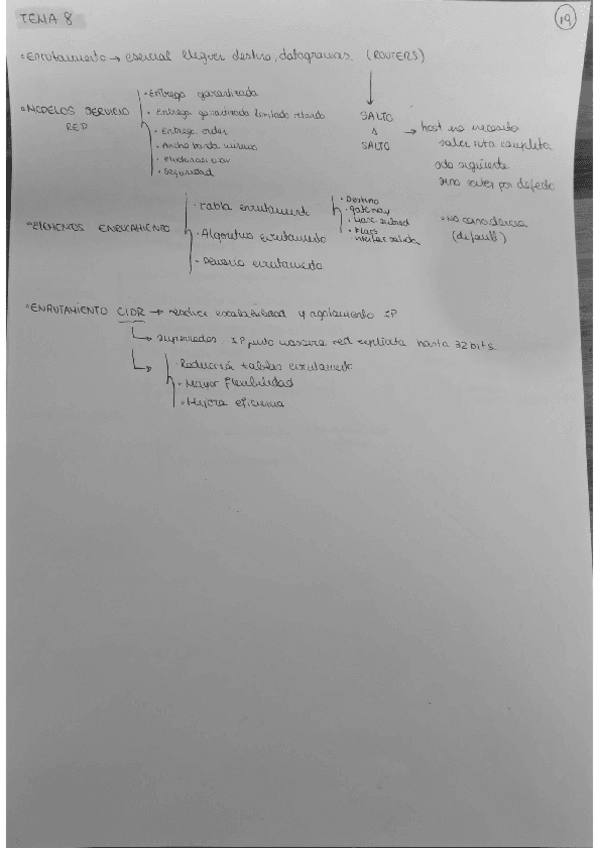 TEMA 8
19
• Enrutamiento → esencial llegar destino, datagramas. (ROUTERS)
• MODELOS SERVICIO RED
• Entrega garantizada
• Entrega garantizada limitado retardo
• Entrega orden
• Ancho banda mínimo
• Seguridad
SALTO
A
SALTO
→ host no necesita
saber ruta completa
solo siguiente
sino router por defecto
• ELEMENTOS
• Tabla enrutament
• Algoritmo enrutamiento
• Demonio enrutamiento
• Destino
• gateway
• Masc subred
• Flags
• interfaz salida
• No coincidencia
(default)
• ENRUTAMIENTO CIDR → resolver escalabilidad y agotamiento IP
superredes. IP junto mascara red explicita hasta 32 bits.
• Reducción tablas enrutament
• Mayor flexibilidad
• Mejora eficiencia